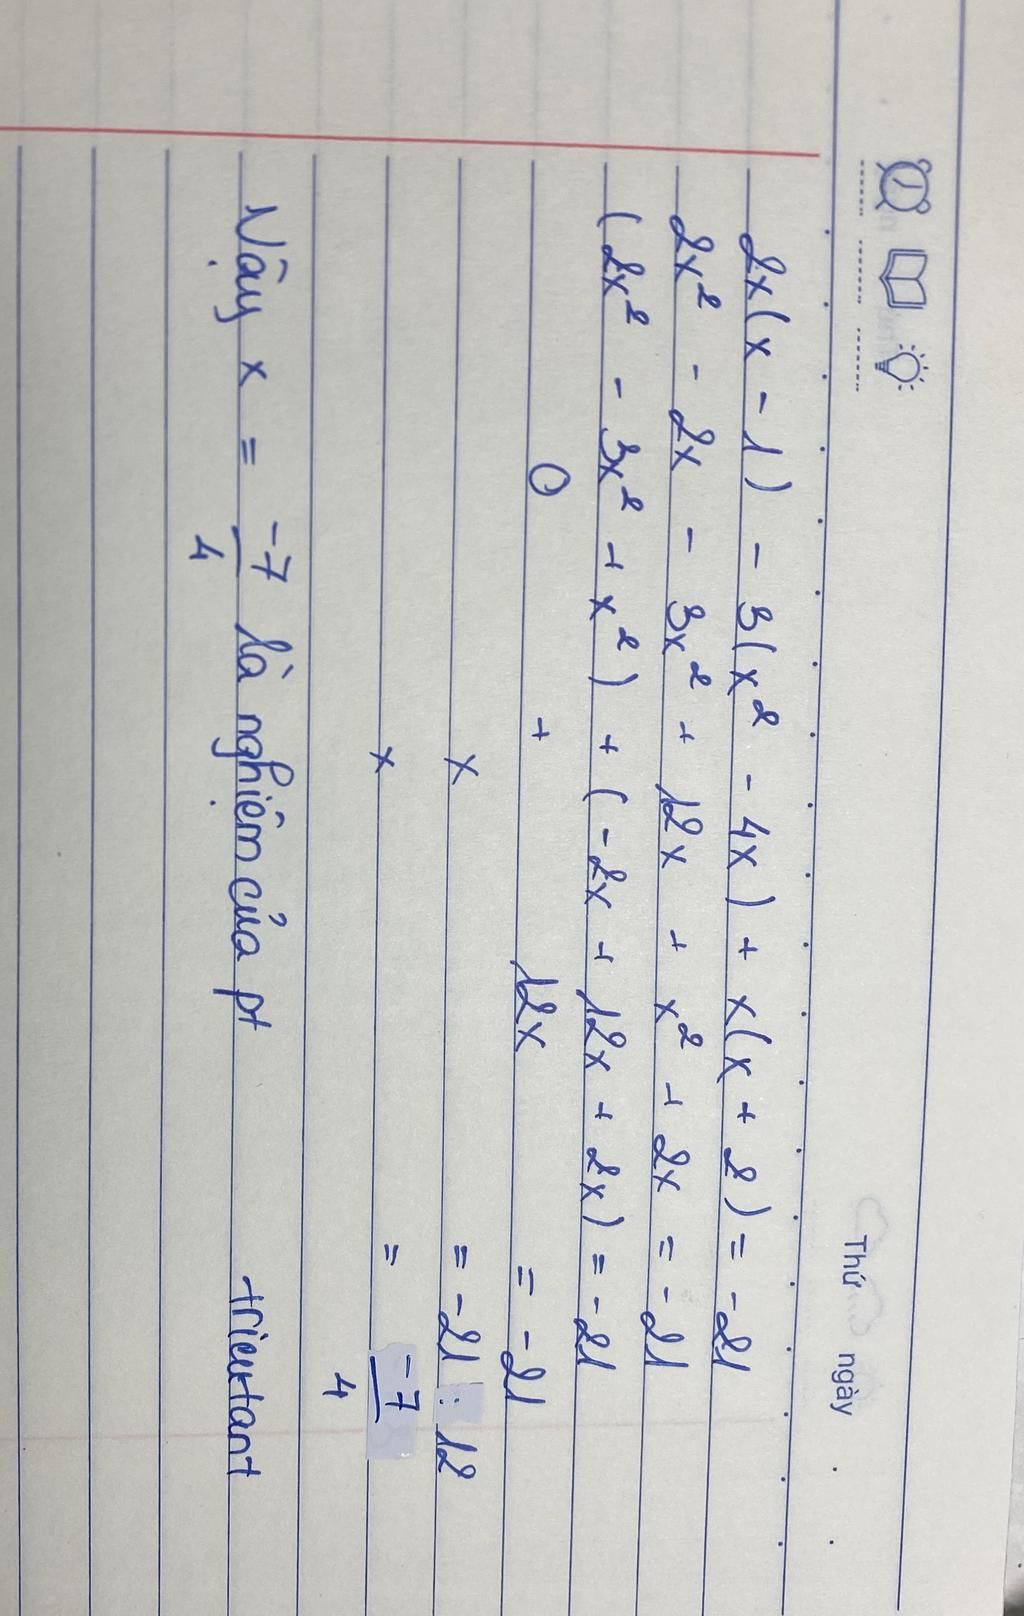 Thứ ngày
2x(x - 1) - 3(x² - 4x) + x(x + 2) = -21
2x² - 2x - 3x² + 12x + x² + 2x = -21
(2x² - 3x² + x²) + (-2x + 12x + 2x) = -21
0 + 12x = -21
x = -21 : 12
x = -7/4
Vậy x = -7/4 là nghiệm của pt
trieutant